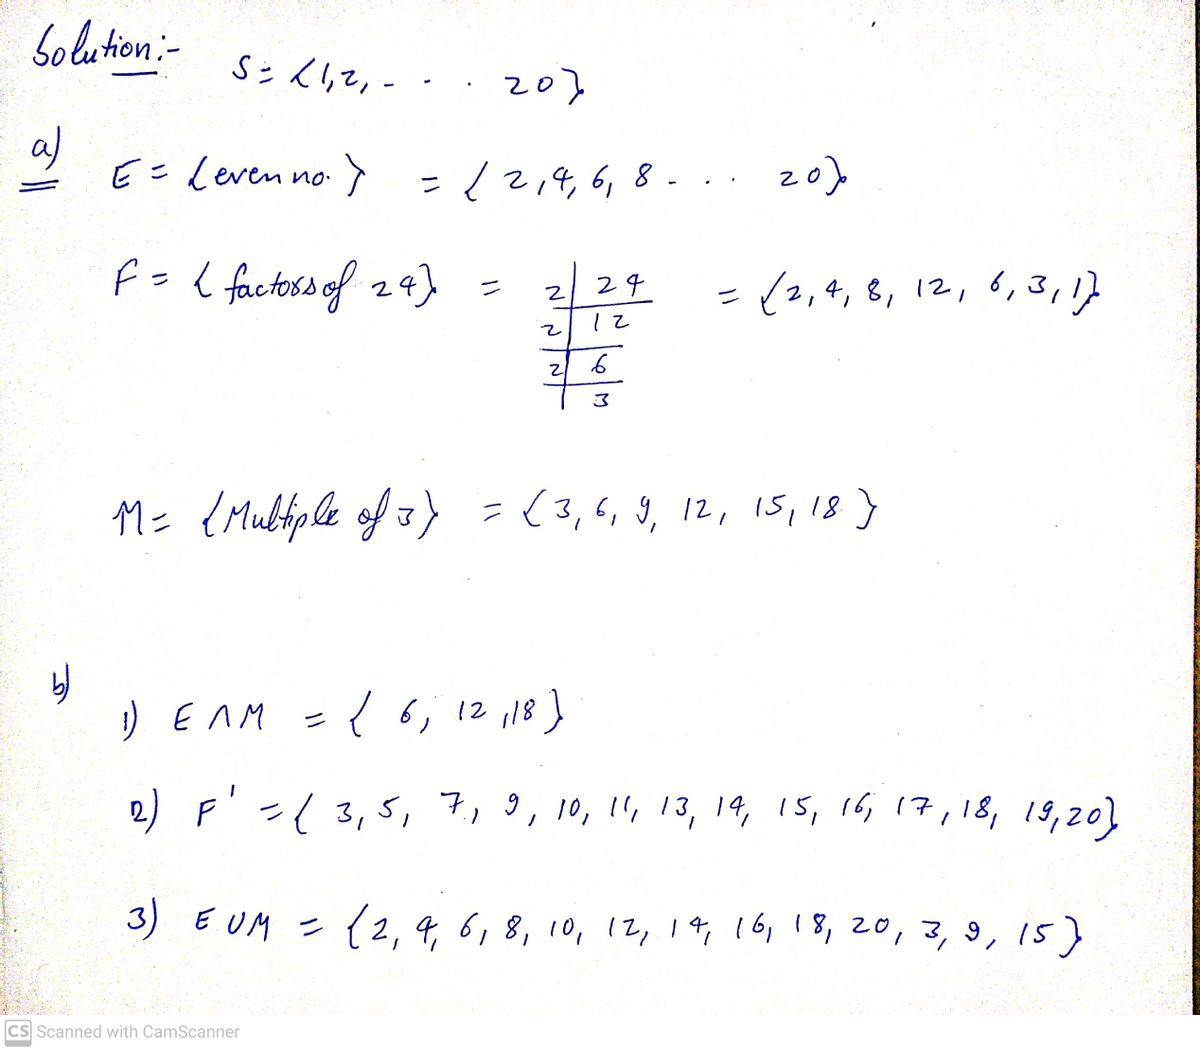 Solution:-
S = {1,2, - . . . 20}
a)
E = {even no.} = {2,4,6,8 - . . . 20}
F = {factors of 24} = 2 | 24 = {2,4,8,12,6,3,1}
2 | 12
2 | 6
3
M = {Multiple of 3} = {3,6,9,12,15,18}
b)
1) E ∩ M = {6,12,18}
2) F' = {3,5,7,9,10,11,13,14,15,16,17,18,19,20}
3) E ∪ M = {2,4,6,8,10,12,14,16,18,20,3,9,15}
CS Scanned with CamScanner